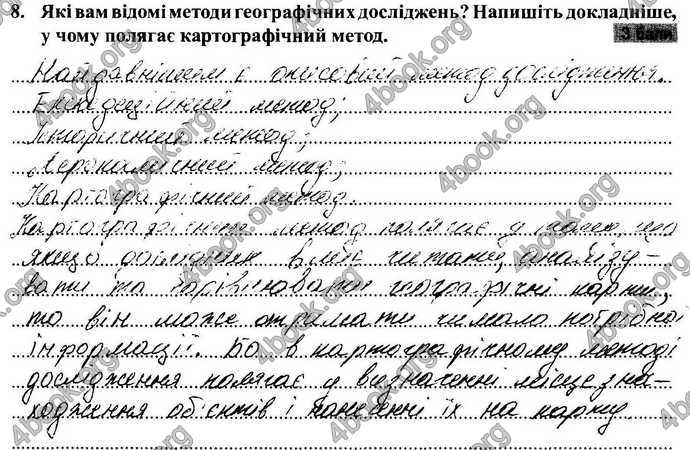 8. Які вам відомі методи географічних досліджень? Напишіть докладніше,
у чому полягає картографічний метод.
3 бали
Найдавнішим є описовий метод дослідження.
Експедиційний метод;
Історичний метод;
Аерокосмічний метод;
Картографічний метод.
Картографічний метод полягає у тому, що
якщо дослідник вміє читати, аналізу-
вати та порівнювати географічні карти,
то він може отримати чимало потрібної
інформації. Бо в картографічному методі
дослідження полягає у визначенні місцезна-
ходження об'єктів і нанесенні їх на карту
4book.org